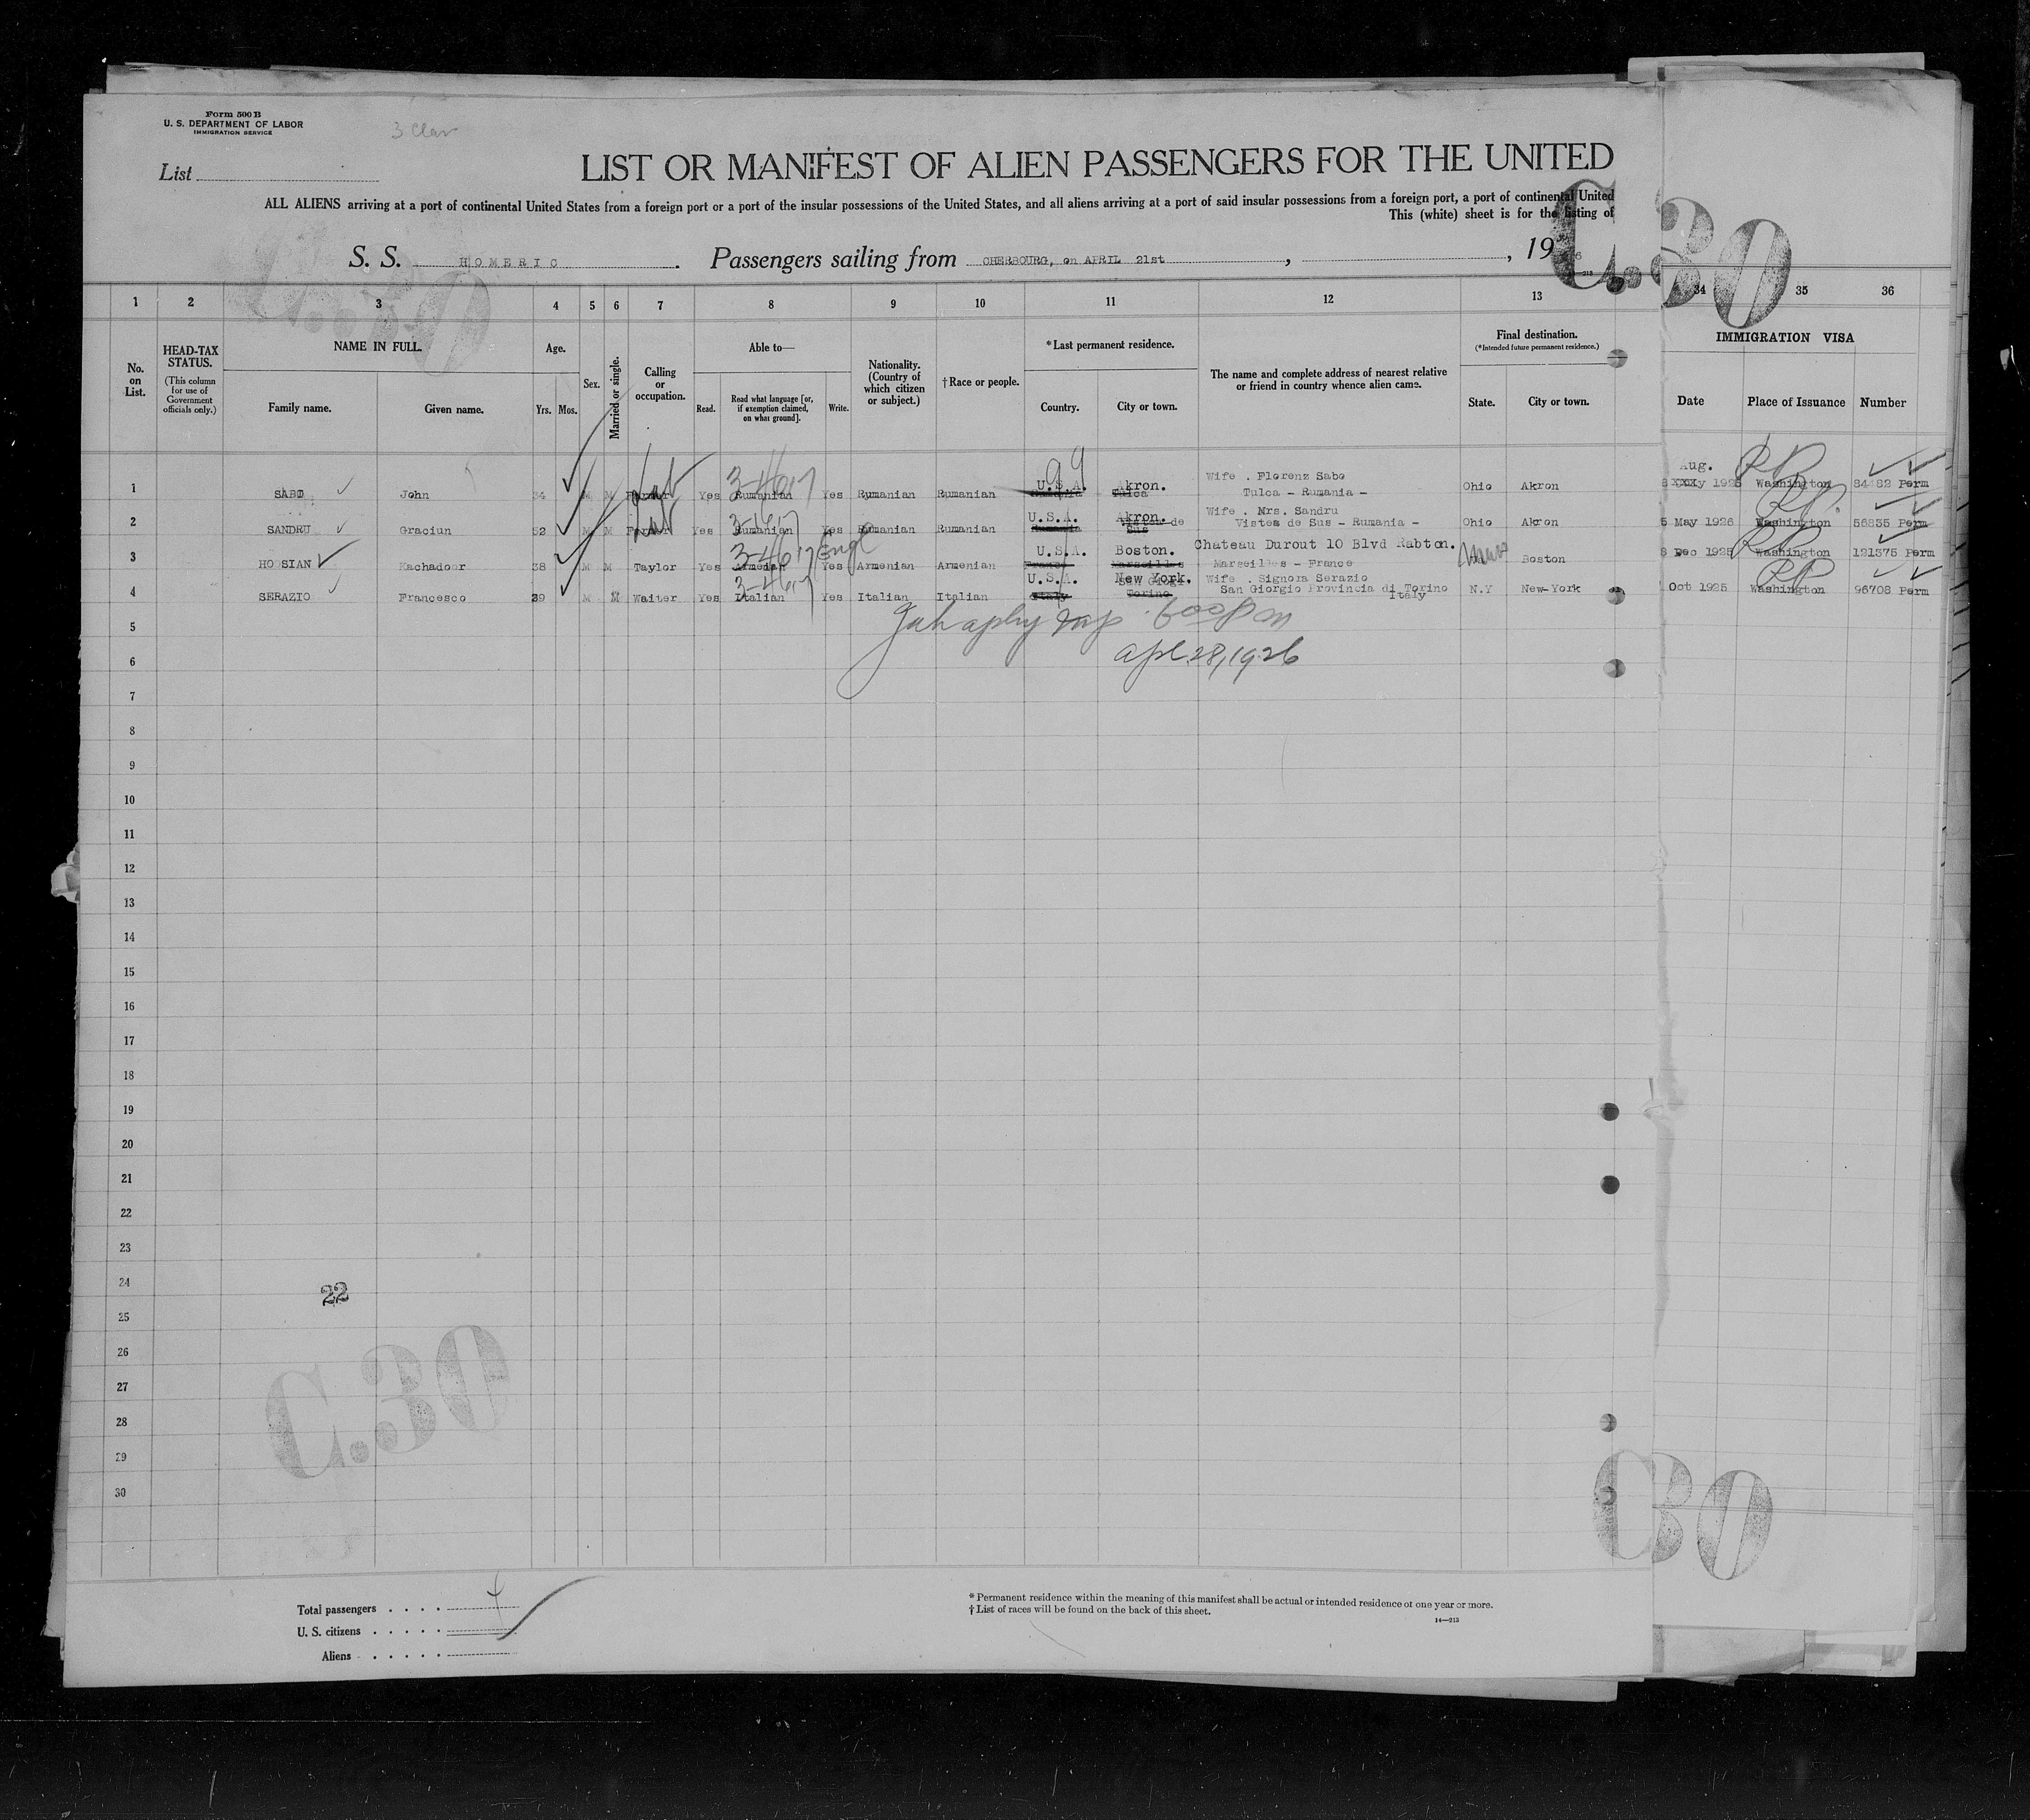 Form 500 B
U. S. DEPARTMENT OF LABOR
IMMIGRATION SERVICE
List
LIST OR MANIFEST OF ALIEN PASSENGERS FOR THE UNITED
ALL ALIENS arriving at a port of continental United States from a foreign port or a port of the insular possessions of the United States, and all aliens arriving at a port of said insular possessions from a foreign port, a port of continental United
This (white) sheet is for the listing of
S. S. HOMERIC. Passengers sailing from CHERBOURG, on APRIL 21st, , 19
C.30
1 2 3 4 5 6 7 8 9 10 11 12 13 34 35 36
No. on List.
HEAD-TAX STATUS. (This column for use of Government officials only.)
NAME IN FULL.
Family name. Given name.
Age.
Yrs. Mos.
Sex.
Married or single.
Calling or occupation.
Able to—
Read. Read what language [or, if exemption claimed, on what ground]. Write.
Nationality. (Country of which citizen or subject.)
†Race or people.
*Last permanent residence.
Country. City or town.
The name and complete address of nearest relative or friend in country whence alien came.
Final destination.
(*Intended future permanent residence.)
State. City or town.
IMMIGRATION VISA
Date Place of Issuance Number
1 SABO John 34 M M Farmer Yes Rumanian Yes Rumanian Rumanian U.S.A. Akron. Wife . Florenz Sabo Tulca - Rumania - Ohio Akron Aug. 1925 Washington 84482 Perm
2 SANDRU Graciun 52 M M Farmer Yes Rumanian Yes Rumanian Rumanian U.S.A. Akron. Wife . Mrs. Sandru Vistes de Sus - Rumania - Ohio Akron 5 May 1926 Washington 56835 Perm
3 HOOSIAN Kachadoor 38 M M Taylor Yes Armenian Engl Yes Armenian Armenian U.S.A. Boston. Chateau Durout 10 Blvd Rabton. Marseilles - France Mass Boston 8 Dec 1925 Washington 121375 Perm
4 SERAZIO Francesco 39 M M Waiter Yes Italian Yes Italian Italian U.S.A. New York. Wife . Signora Serazio San Giorgio Provincia di Torino Italy N.Y New-York Oct 1925 Washington 96708 Perm
5
6 Apl. 28, 1926
7
8
9
10
11
12
13
14
15
16
17
18
19
20
21
22
23
24
22
25
26
27
28
29
30
C.30
C30
Total passengers . . . . 4
U. S. citizens . . . . .
Aliens . . . . . .
* Permanent residence within the meaning of this manifest shall be actual or intended residence of one year or more.
† List of races will be found on the back of this sheet.
14—213